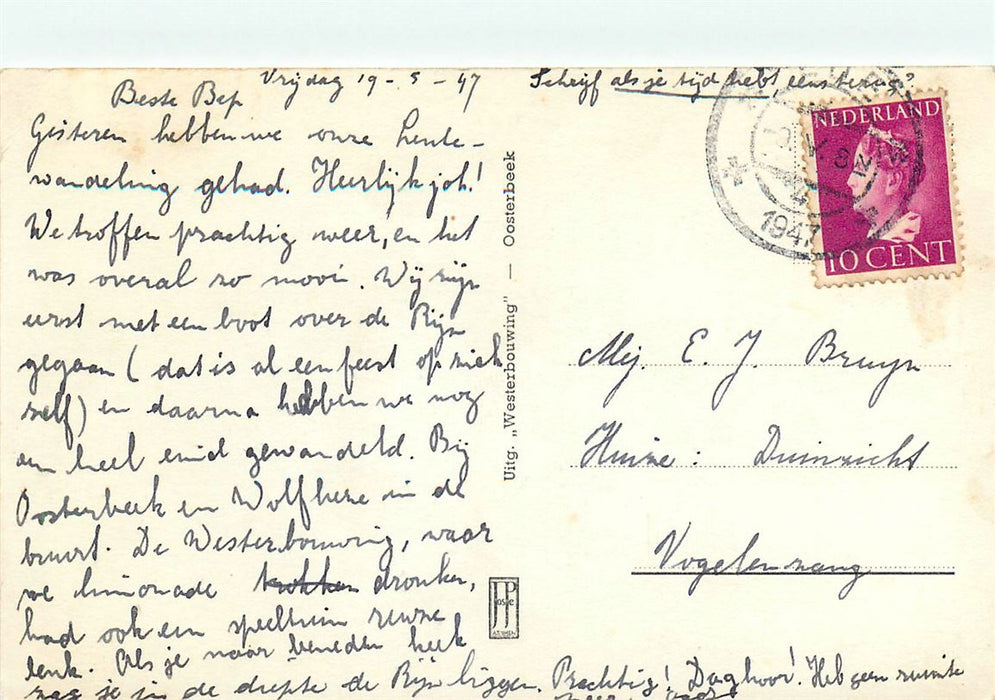 Vrijdag 19-5-47
Beste Bep
Gisteren hebben we onze lente-
wandeling gehad. Heerlijk joh!
We troffen prachtig weer, en het
was overal zo mooi. Wij zijn
eerst met een boot over de Rijn
gegaan (dat is al een feest op zich
zelf) en daarna hebben we nog
een heel eind gewandeld. Bij
Oosterbeek en Wolfheze in de
buurt. De Westerbouwing, waar
we limonade dronken,
had ook een speeltuin reuze
leuk. Als je naar beneden keek
zag je in de diepte de Rijn liggen. Prachtig! Dag hoor! Heb geen ruimte
meer
Schrijf als je tijd hebt, eens terug?
Uitg. „Westerbouwing” — Oosterbeek
JP
NEDERLAND
10 CENT
1947
Mej. E. J. Bruyn
Huize: Duinzicht
Vogelenzang